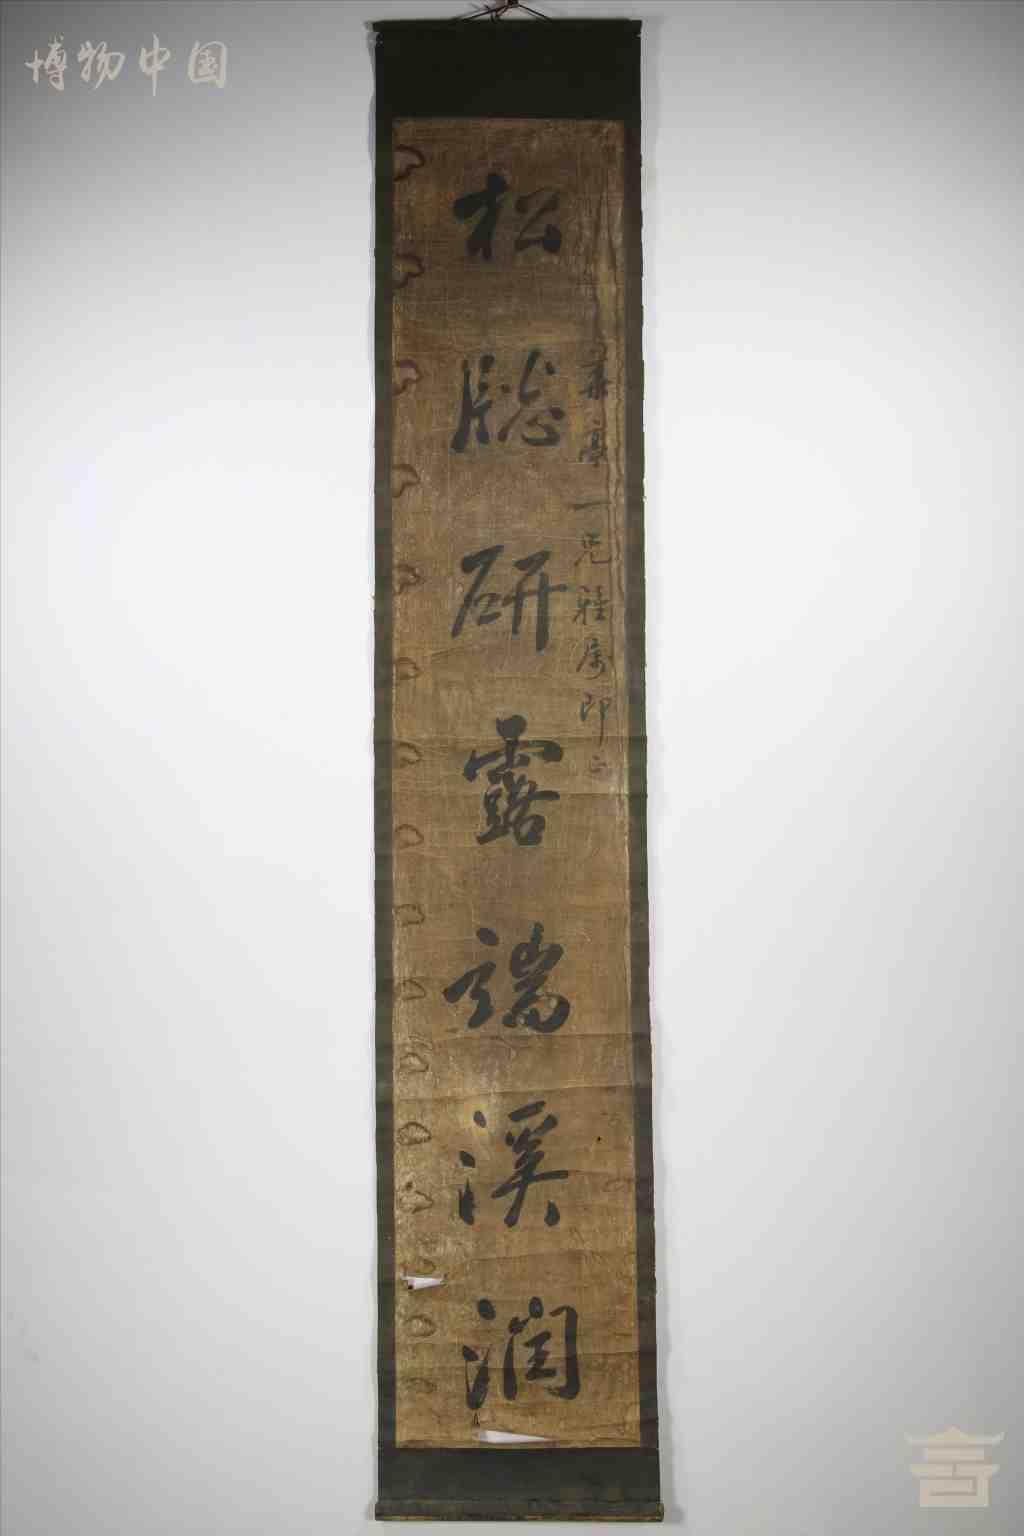 博物中国
華亭一兄雅属即正
松牕研露端溪潤